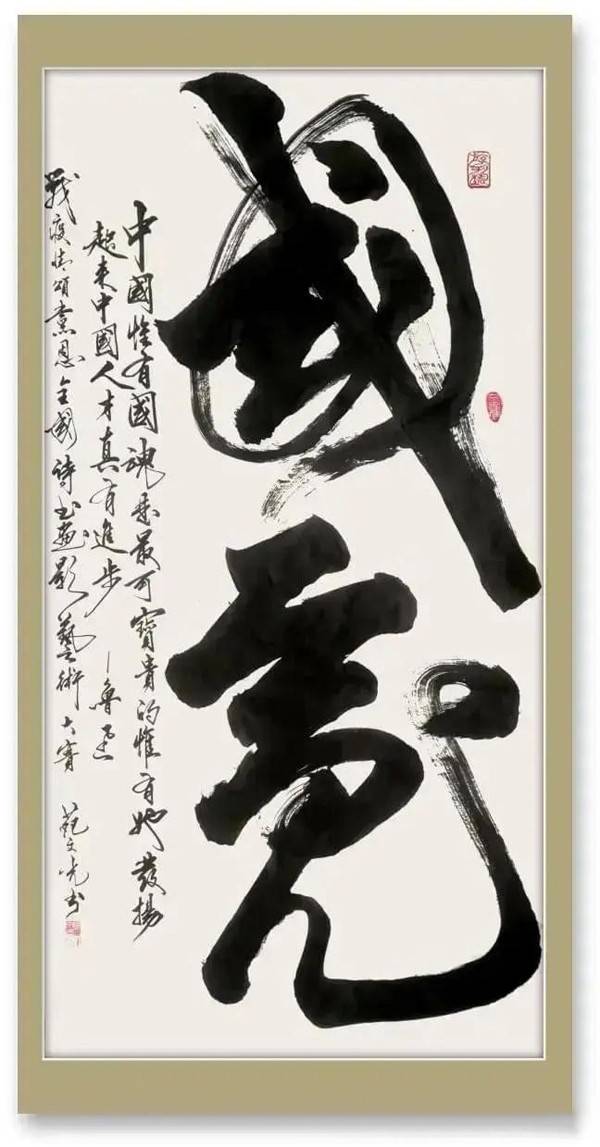 國魂
中國惟有國魂是最可寶貴的惟有她發揚
起來中國人才真有進步 —魯迅
戰疫情頌黨恩全國詩书畫影藝術大賽 范文光书